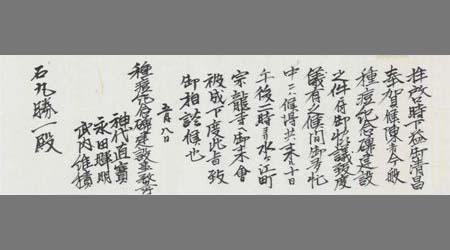 拝啓時下益御清昌
奉賀候陳者今般
種痘紀念碑建設
之件ニ付御協議致度
儀有之候間御多忙
中ニハ候得共来十日
午後二時ヨリ水ヶ江町
宗龍寺ヘ御来會
被成下度此旨
御相談候也
五月八日
種痘紀念碑建設
永田暉明
武内維積
石丸勝一殿